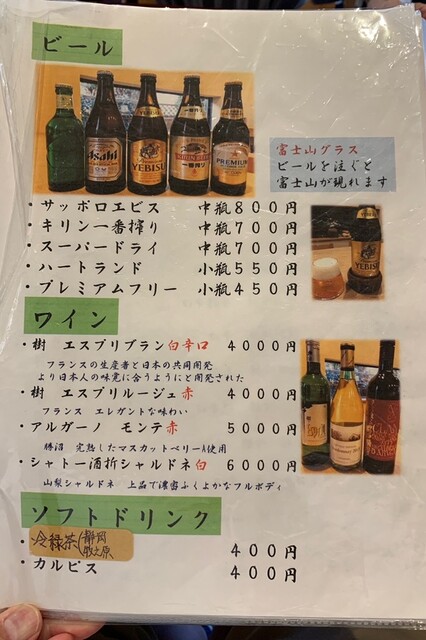 ビール
Asahi
YEBISU
KIRIN BEER
一番搾り
PREMIUM
富士山グラス
ビールを注ぐと
富士山が現れます
YEBISU
・サッポロエビス 中瓶800円
・キリン一番搾り 中瓶700円
・スーパードライ 中瓶700円
・ハートランド 小瓶550円
・プレミアムフリー 小瓶450円
ワイン
・樹 エスプリブラン白辛口 4000円
フランスの生産者と日本の共同開発
より日本人の味覚に合うようにと開発された
・樹 エスプリルージュ赤 4000円
フランス エレガントな味わい
・アルガーノ モンテ赤 5000円
勝沼 完熟したマスカットベリーA使用
・シャトー酒折シャルドネ白 6000円
山梨シャルドネ 上品で濃密ふくよかなフルボディ
ソフトドリンク
・冷緑茶(静岡 牧之原 400円
・カルピス 400円